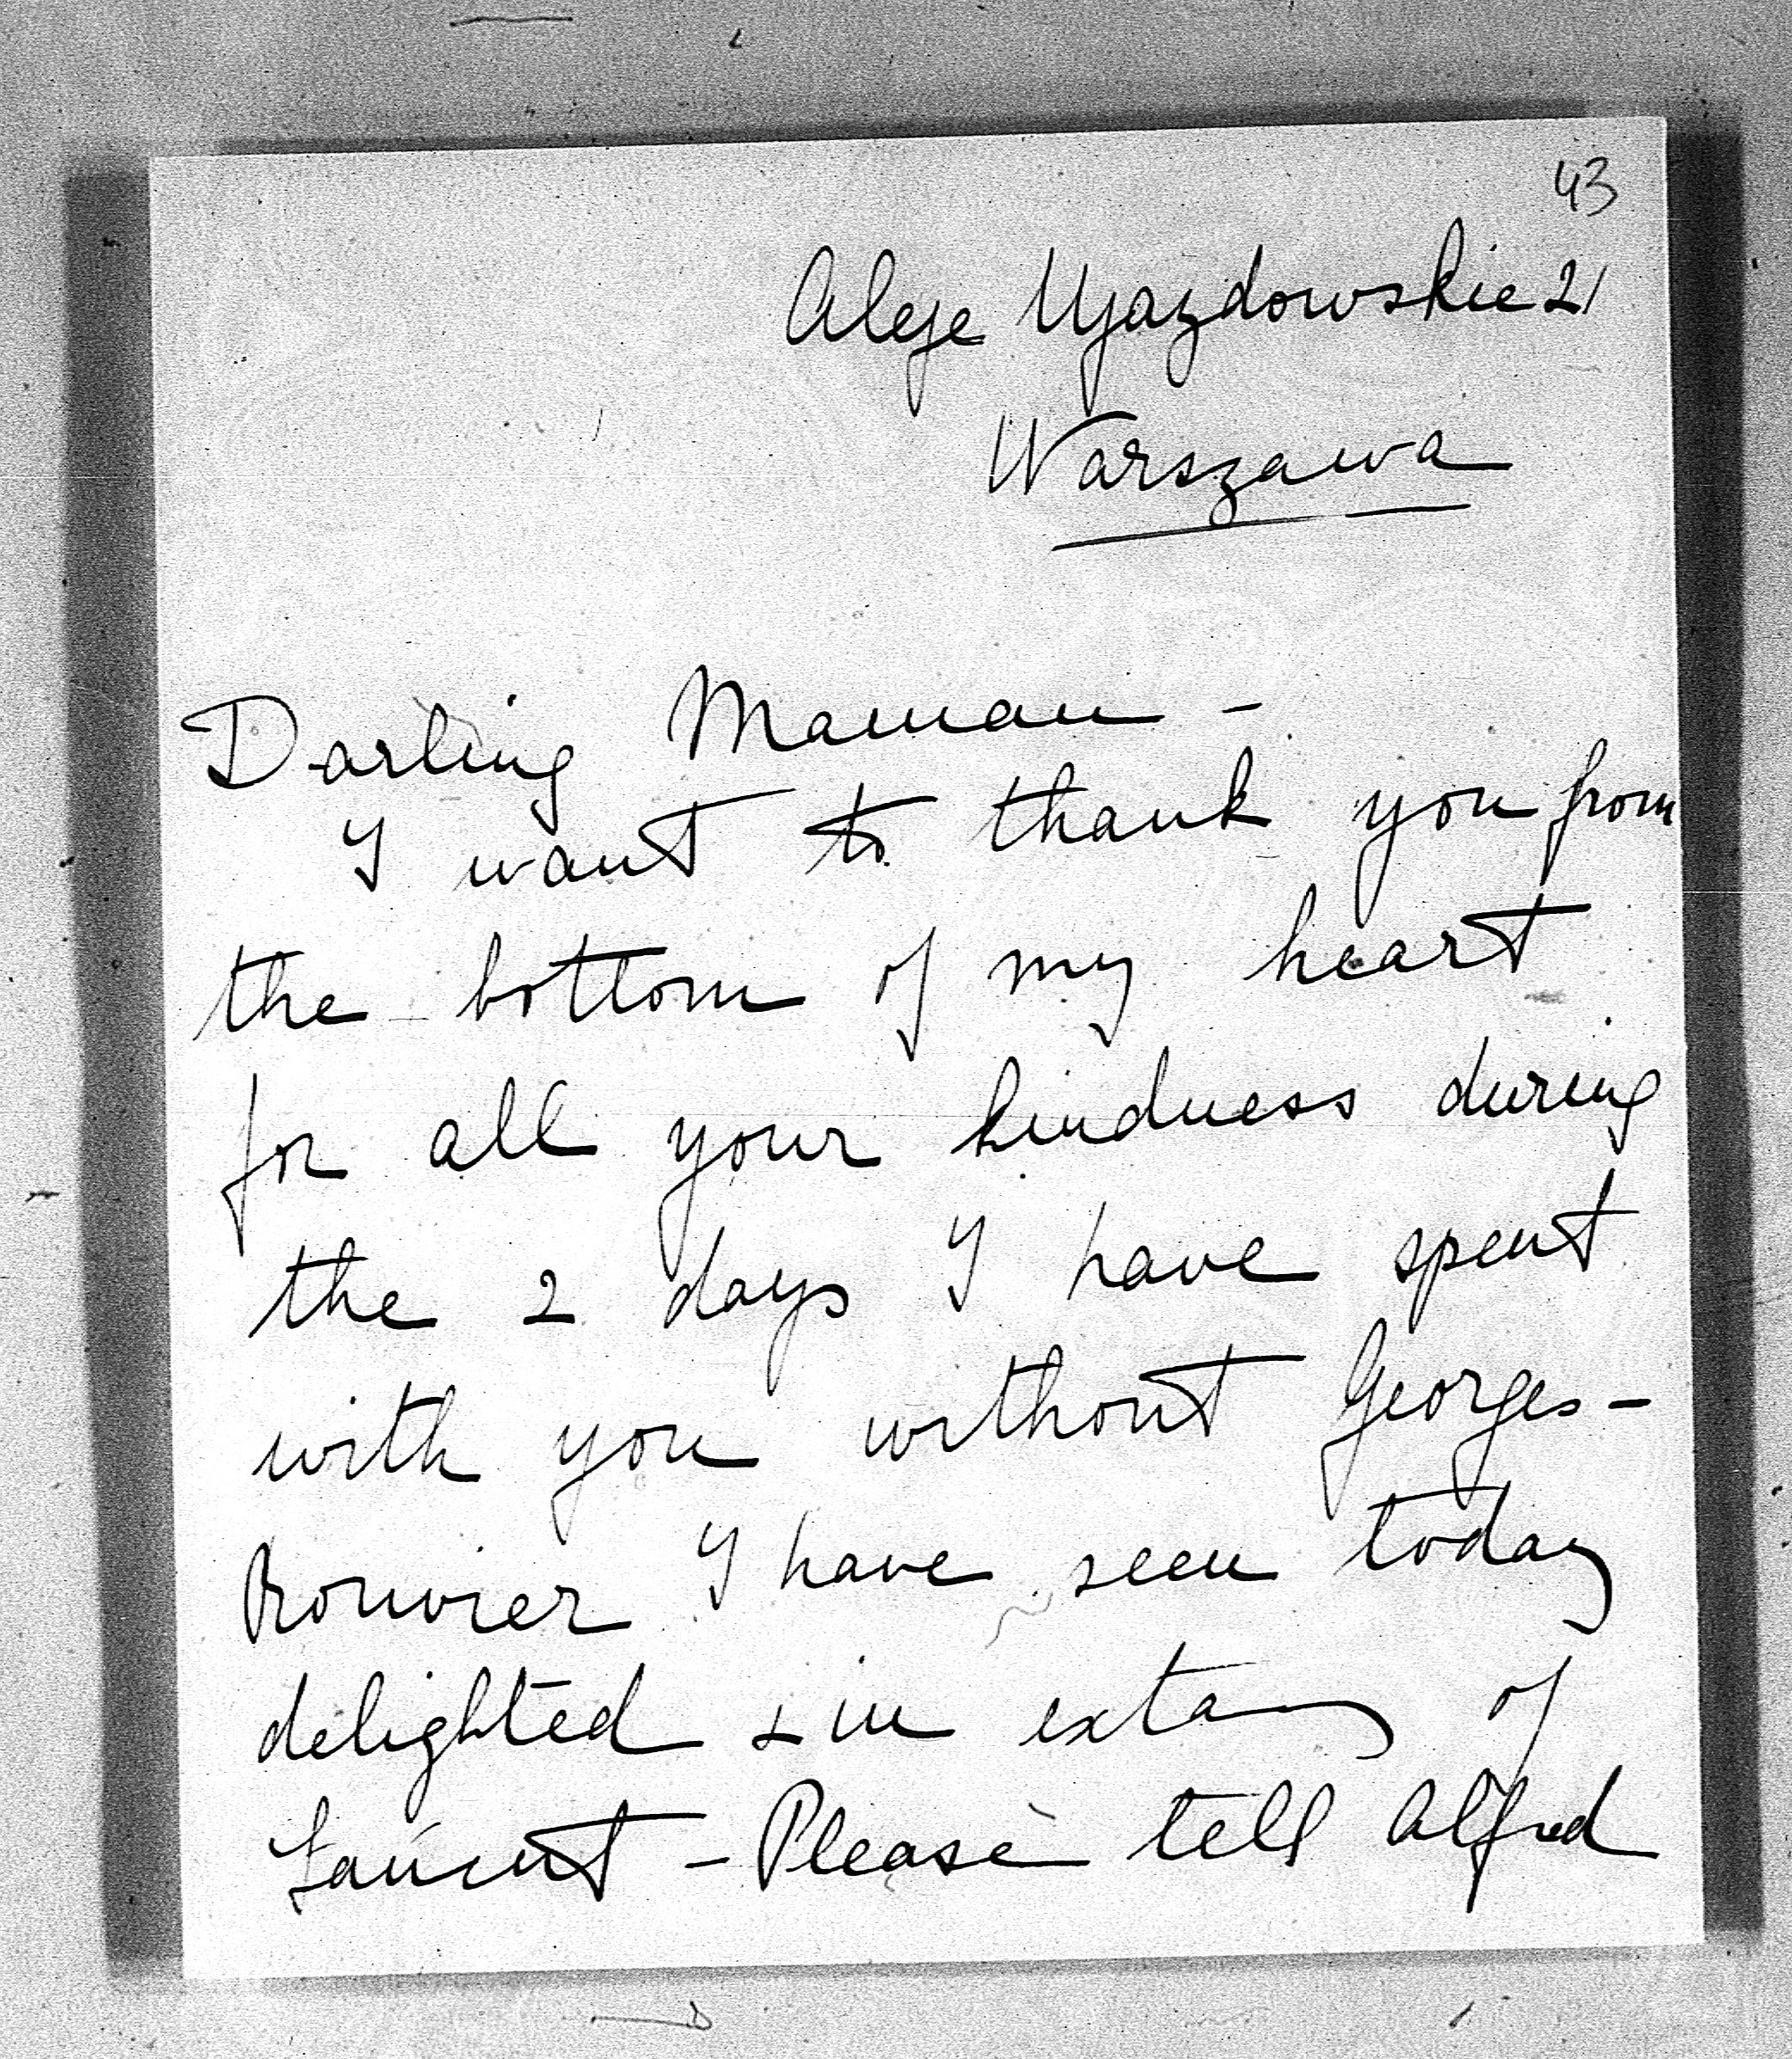 43
Aleje Ujazdowskie 21
Warszawa
Darling Maman -
I want to thank you from
the bottom of my heart
for all your kindness during
the 2 days I have spent
with you without Georges -
Bouvier I have seen today
delighted & in extasy of
Laurent - Please tell Alfred